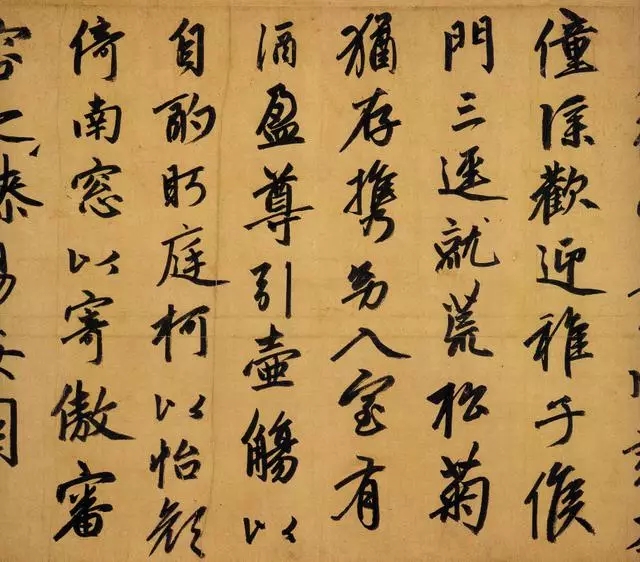 僮僕歡迎稚子候
門三逕就荒松菊
猶存攜幼入室有
酒盈尊引壺觴以
自酌眄庭柯以怡顏
倚南窓以寄傲審
容之膝易安園